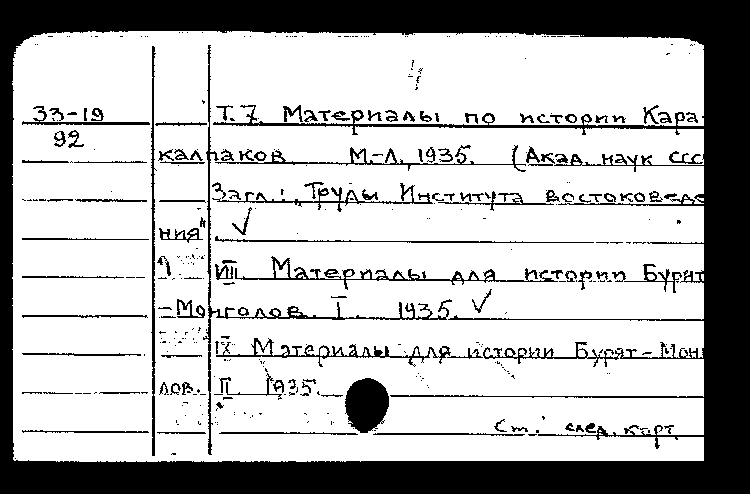 4
33-19 Т. 7. Материалы по истории Кара-
92
калпаков М.-Л., 1935. (Акад. наук ССС
Загл.: „Труды Института востоковеде
ния".
VIII. Материалы для истории Бурят
-Монголов. I. 1935.
IX Материалы для истории Бурят-Мон
лов. II. 1935.
См. след. карт.